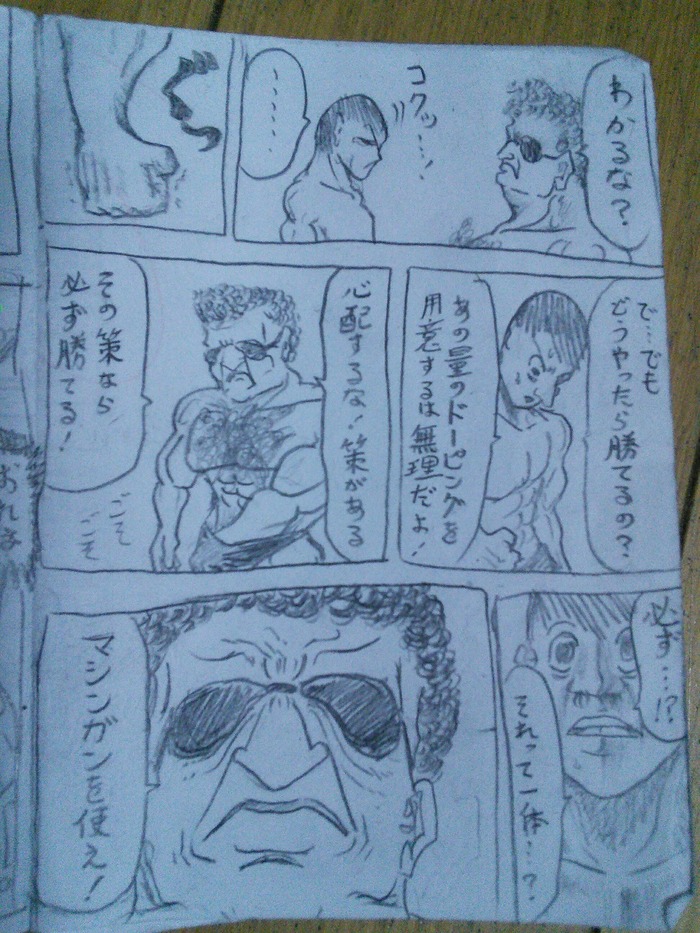 わかるな?
コクッ…!
………
で…でも
どうやったら勝てるの?
あの量のドーピングを
用意するは無理だよ!
心配するな!策がある
その策なら
必ず勝てる!
ごそ
ごそ
必ず…!?
それって一体…?
マシンガンを使え!